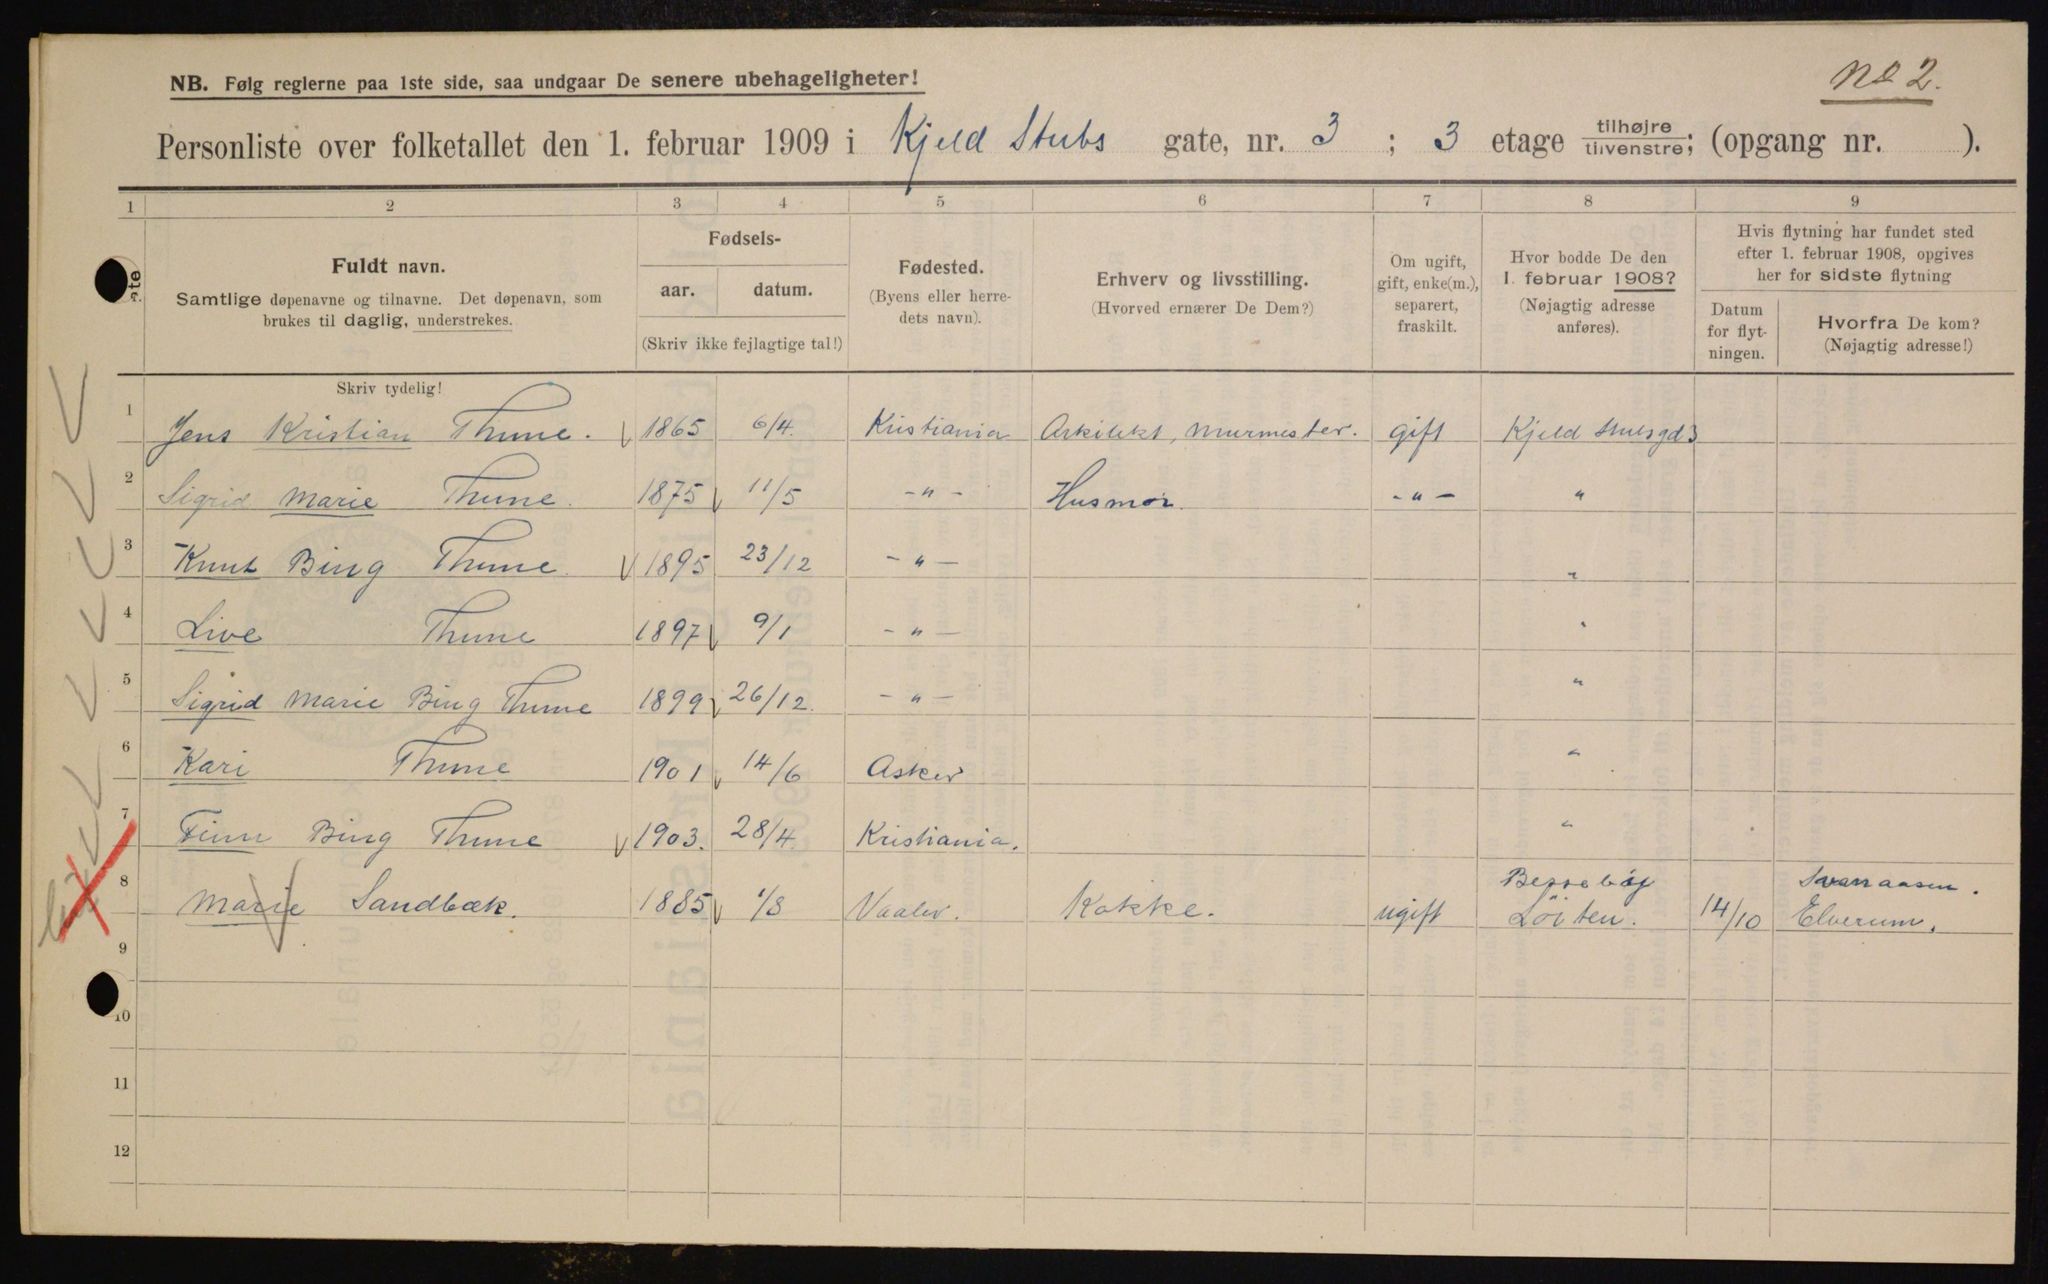 No 2.
NB. Følg reglerne paa 1ste side, saa undgaar De senere ubehageligheter!
Personliste over folketallet den 1. februar 1909 i Kjeld Stubs gate, nr. 3 ; 3 etage tilhøjre tilvenstre; (opgang nr. ).
1 2 3 4 5 6 7 8 9
Fuldt navn.
Samtlige døpenavne og tilnavne. Det døpenavn, som
brukes til daglig, understrekes.
Fødsels-
aar. datum.
(Skriv ikke fejlagtige tal!)
Fødested.
(Byens eller herre-
dets navn).
Erhverv og livsstilling.
(Hvorved ernærer De Dem?)
Om ugift,
gift, enke(m.),
separert,
fraskilt.
Hvor bodde De den
1. februar 1908?
(Nøjagtig adresse
anføres).
Hvis flytning har fundet sted
efter 1. februar 1908, opgives
her for sidste flytning
Datum
for flyt-
ningen.
Hvorfra De kom?
(Nøjagtig adresse!)
Skriv tydelig!
1 Jens Kristian Thune. 1865 6/4. Kristiania Arkitekt, murmester. gift Kjeld Stubsgd 3
2 Sigrid Marie Thune. 1875 11/5 -"- Husmor. -"- "
3 Knut Bing Thune. 1895 23/12 -"- "
4 Live Thune 1897 9/1 -"- "
5 Sigrid Marie Bing Thune 1899 26/12. -"- "
6 Kari Thune 1901 14/6 Asker "
7 Finn Bing Thune 1903. 28/4. Kristiania. "
8 Marie Sandbæk. 1885 1/8 Vaaler. Kokke. ugift Løiten. 14/10 Elverum.
9
10
11
12